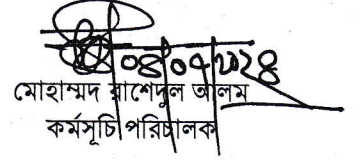 ০৪/০৭/২০২৪
মোহাম্মদ রাশেদুল আলম
কর্মসূচি পরিচালক